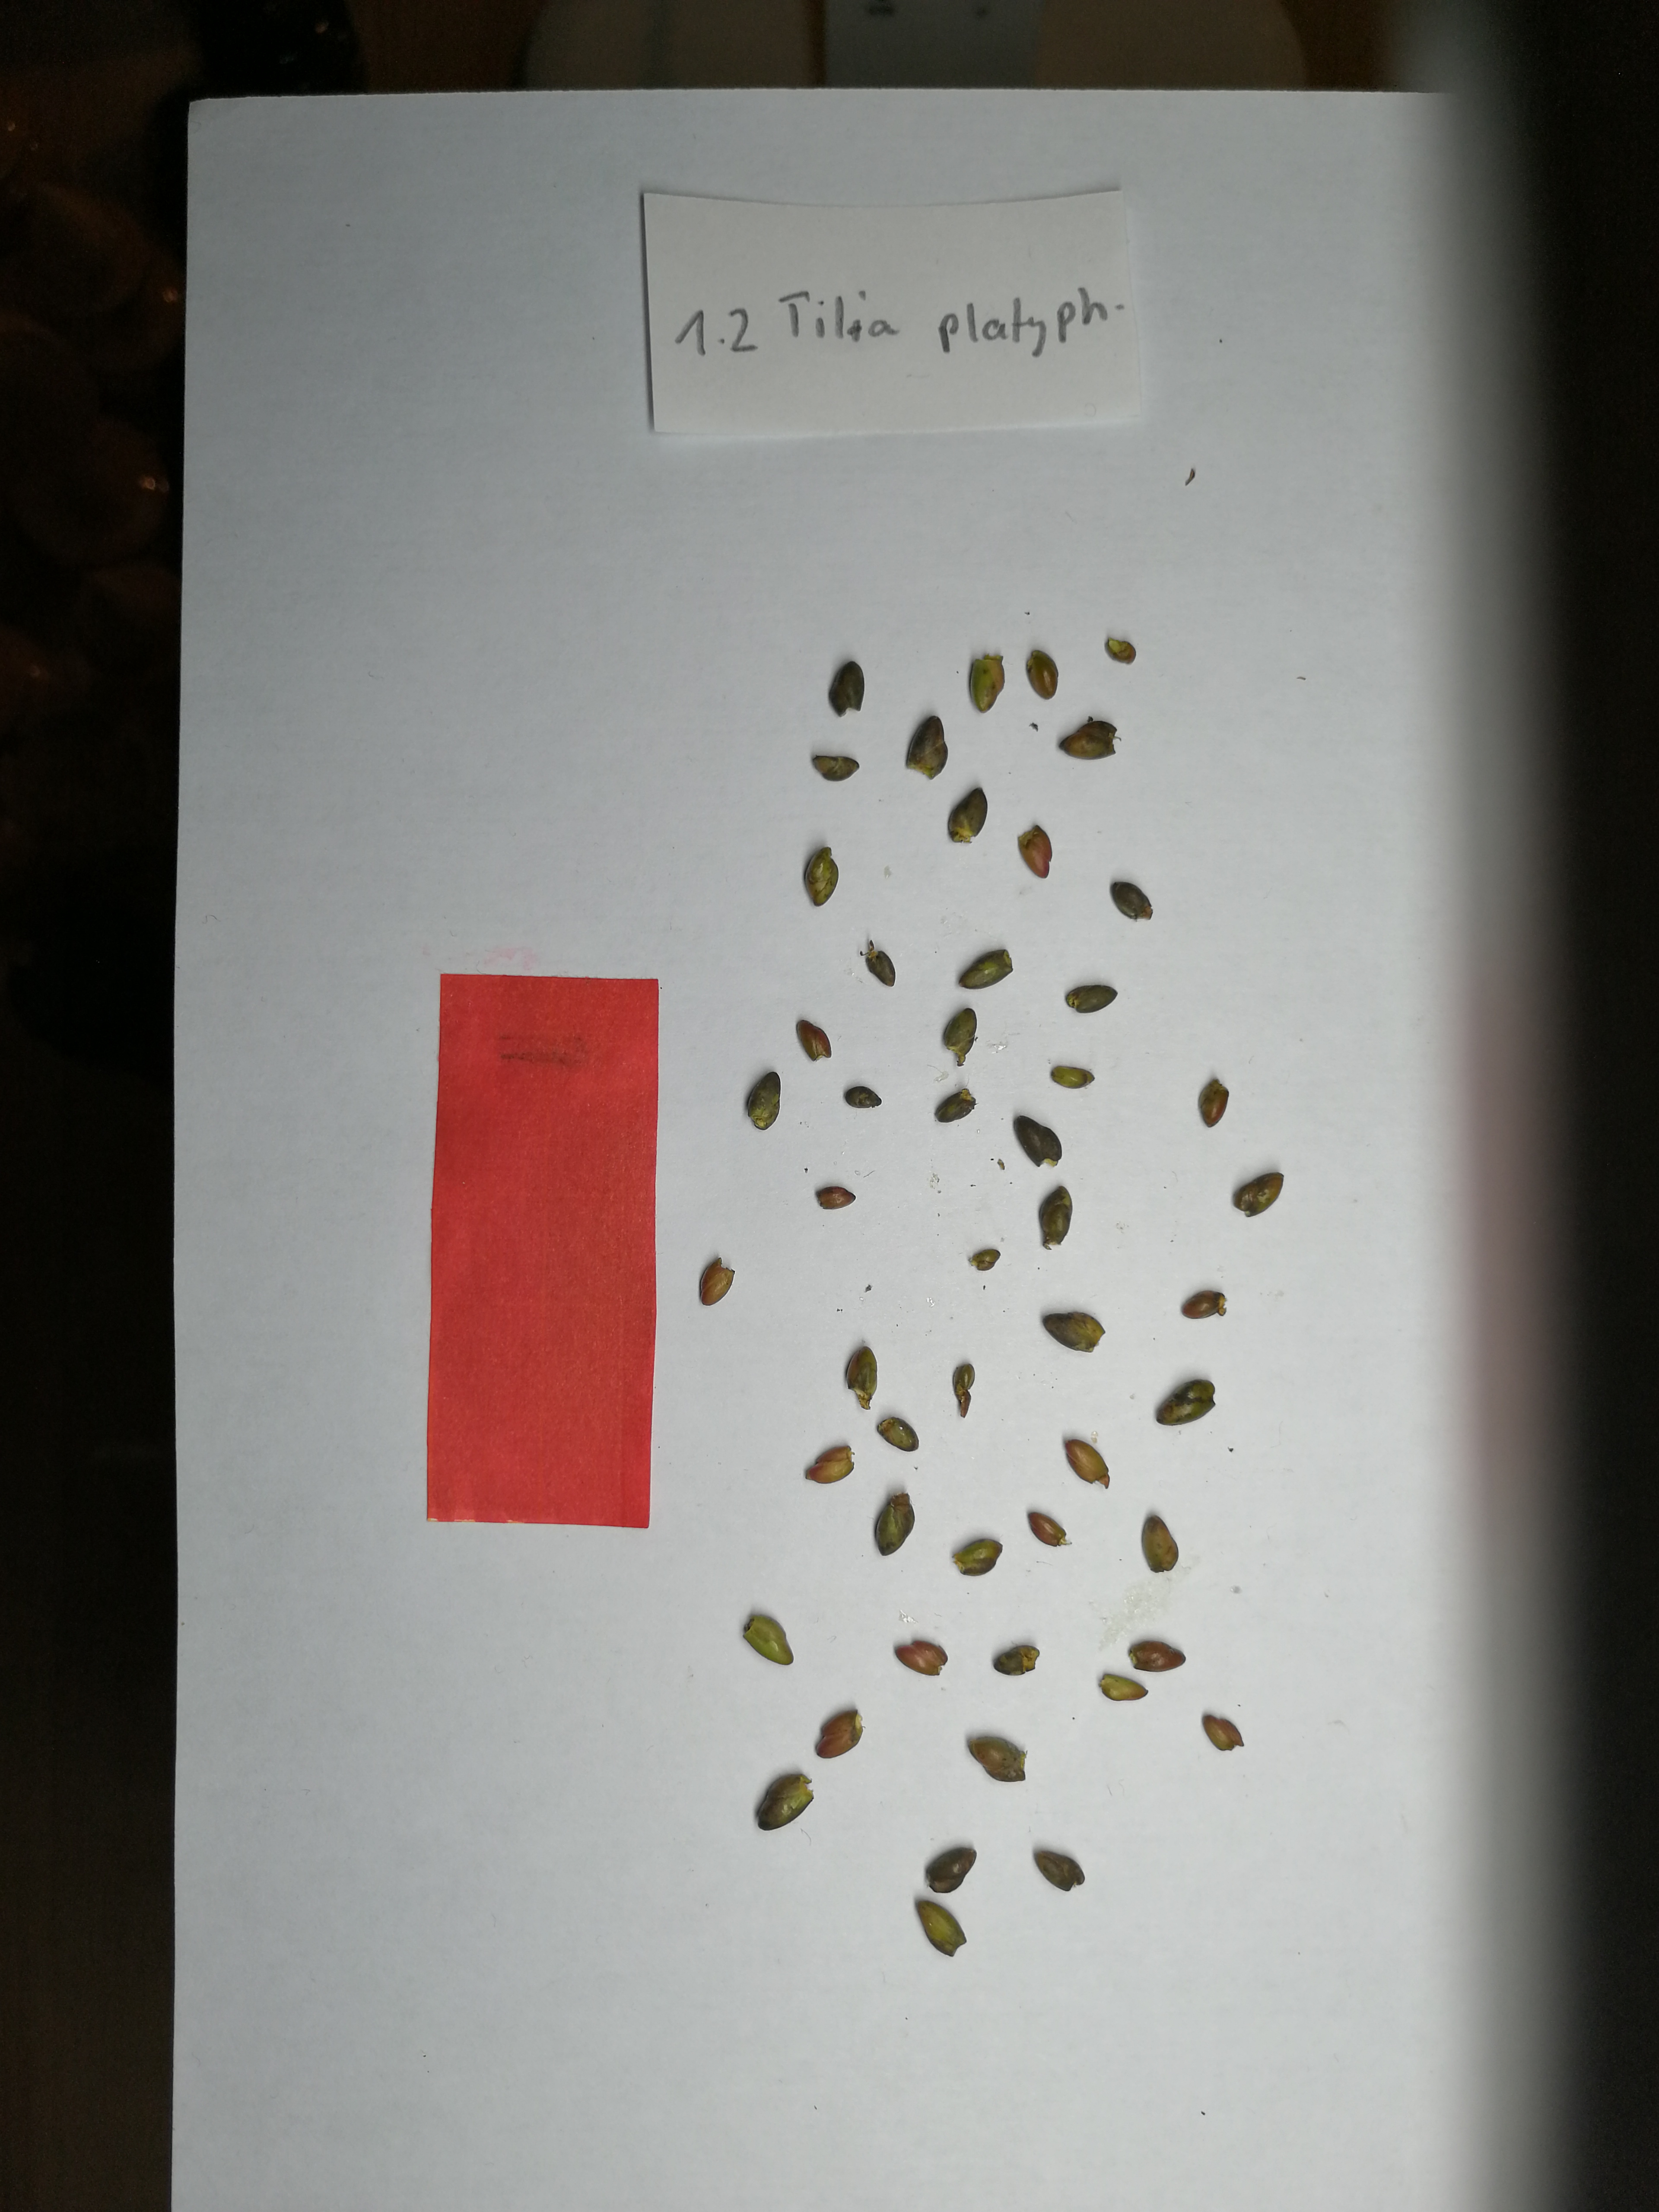 1.2 Tilia platyph.